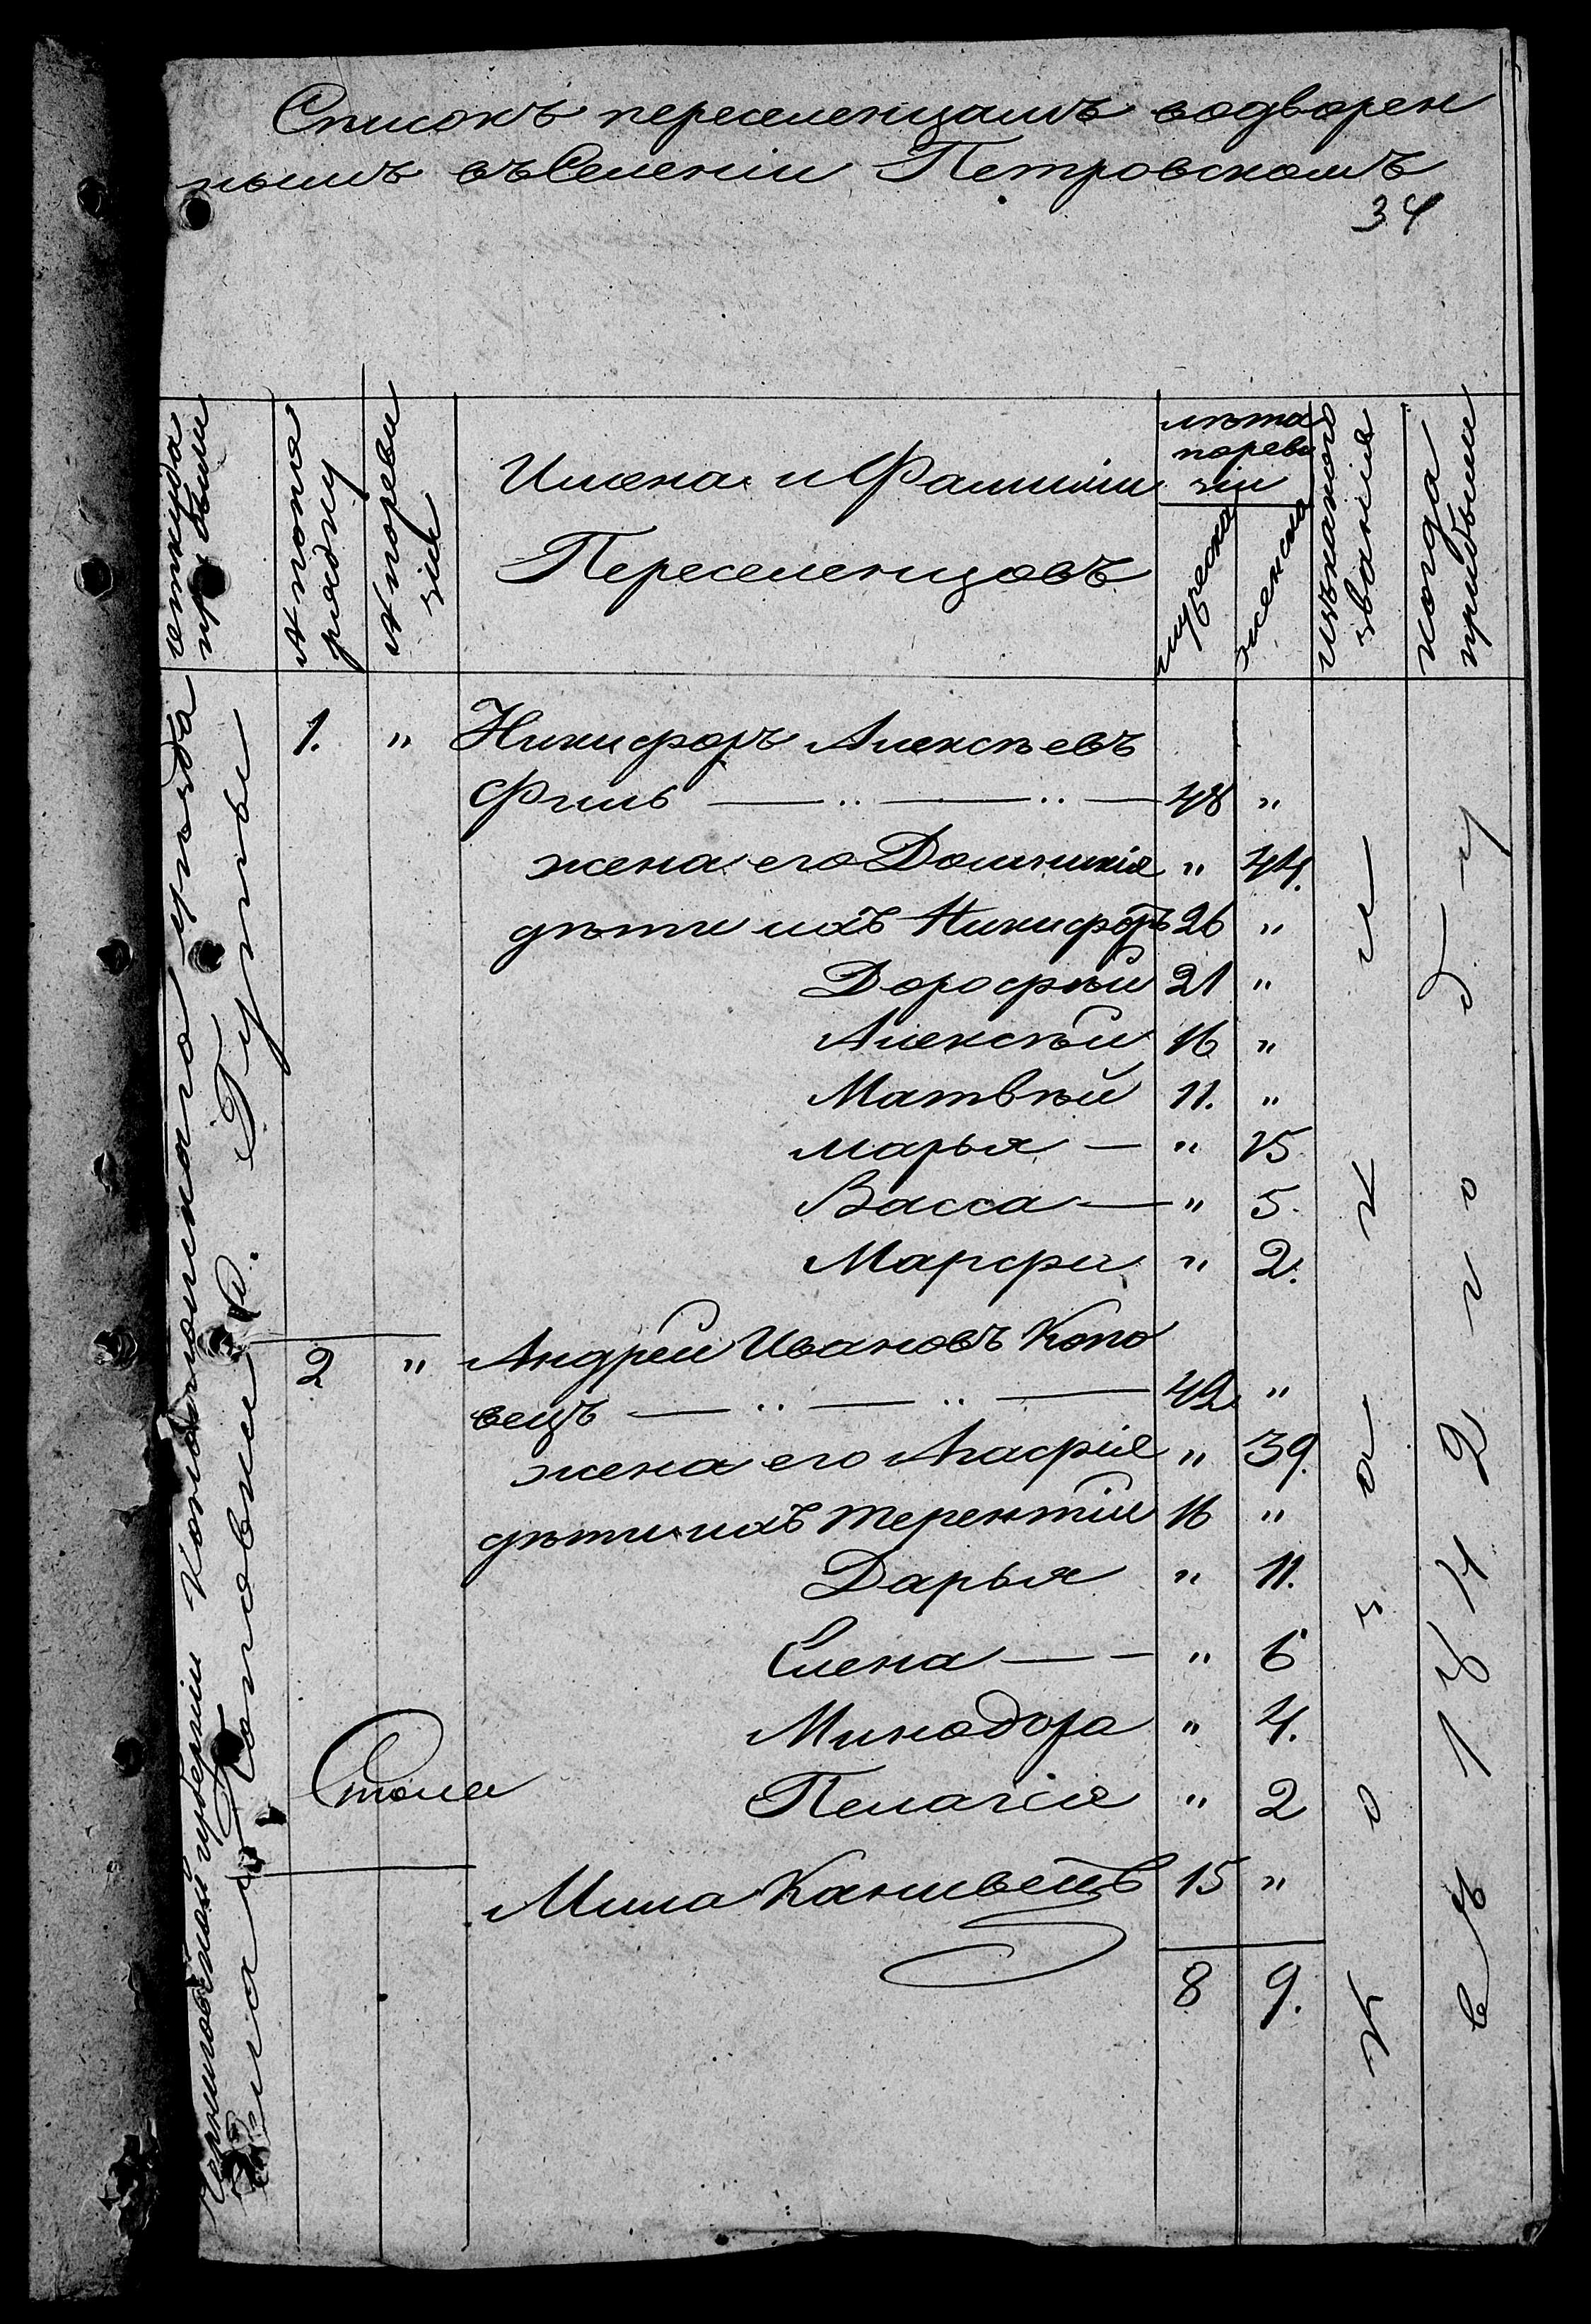 Списокъ переселенцамъ водворен
нымъ въ Селеніи Петровскомъ
34
откуда
прибыли
№ попо
рядку
№ пореви
зіи
Имена и Фамиліи
Переселенцовъ
лѣта
мужеска
женска
изъ какого
званія
когда
прибыли
Черниговской губерніи Конотопскаго уѣзда
1. " Никифоръ Алексѣевъ
Филь — .. — .. — 48 "
жена его Домникія " 44.
дѣти ихъ Никифоръ 26 "
Дорофѣй 21 "
Алексѣй 16 "
Матвѣй 11. "
Марья — " 15
Васса — " 5.
Марфа " 2.
2 " Андрей Ивановъ Копо
вецъ — .. — .. — 42 "
жена его Агафія " 39.
дѣти ихъ Терентій 16 "
Дарья " 11.
Елена — — " 6
Минодора " 4.
Пелагія " 2
Мина Канивецъ 15 "
8 9.
К о з а к и
въ 1842 году